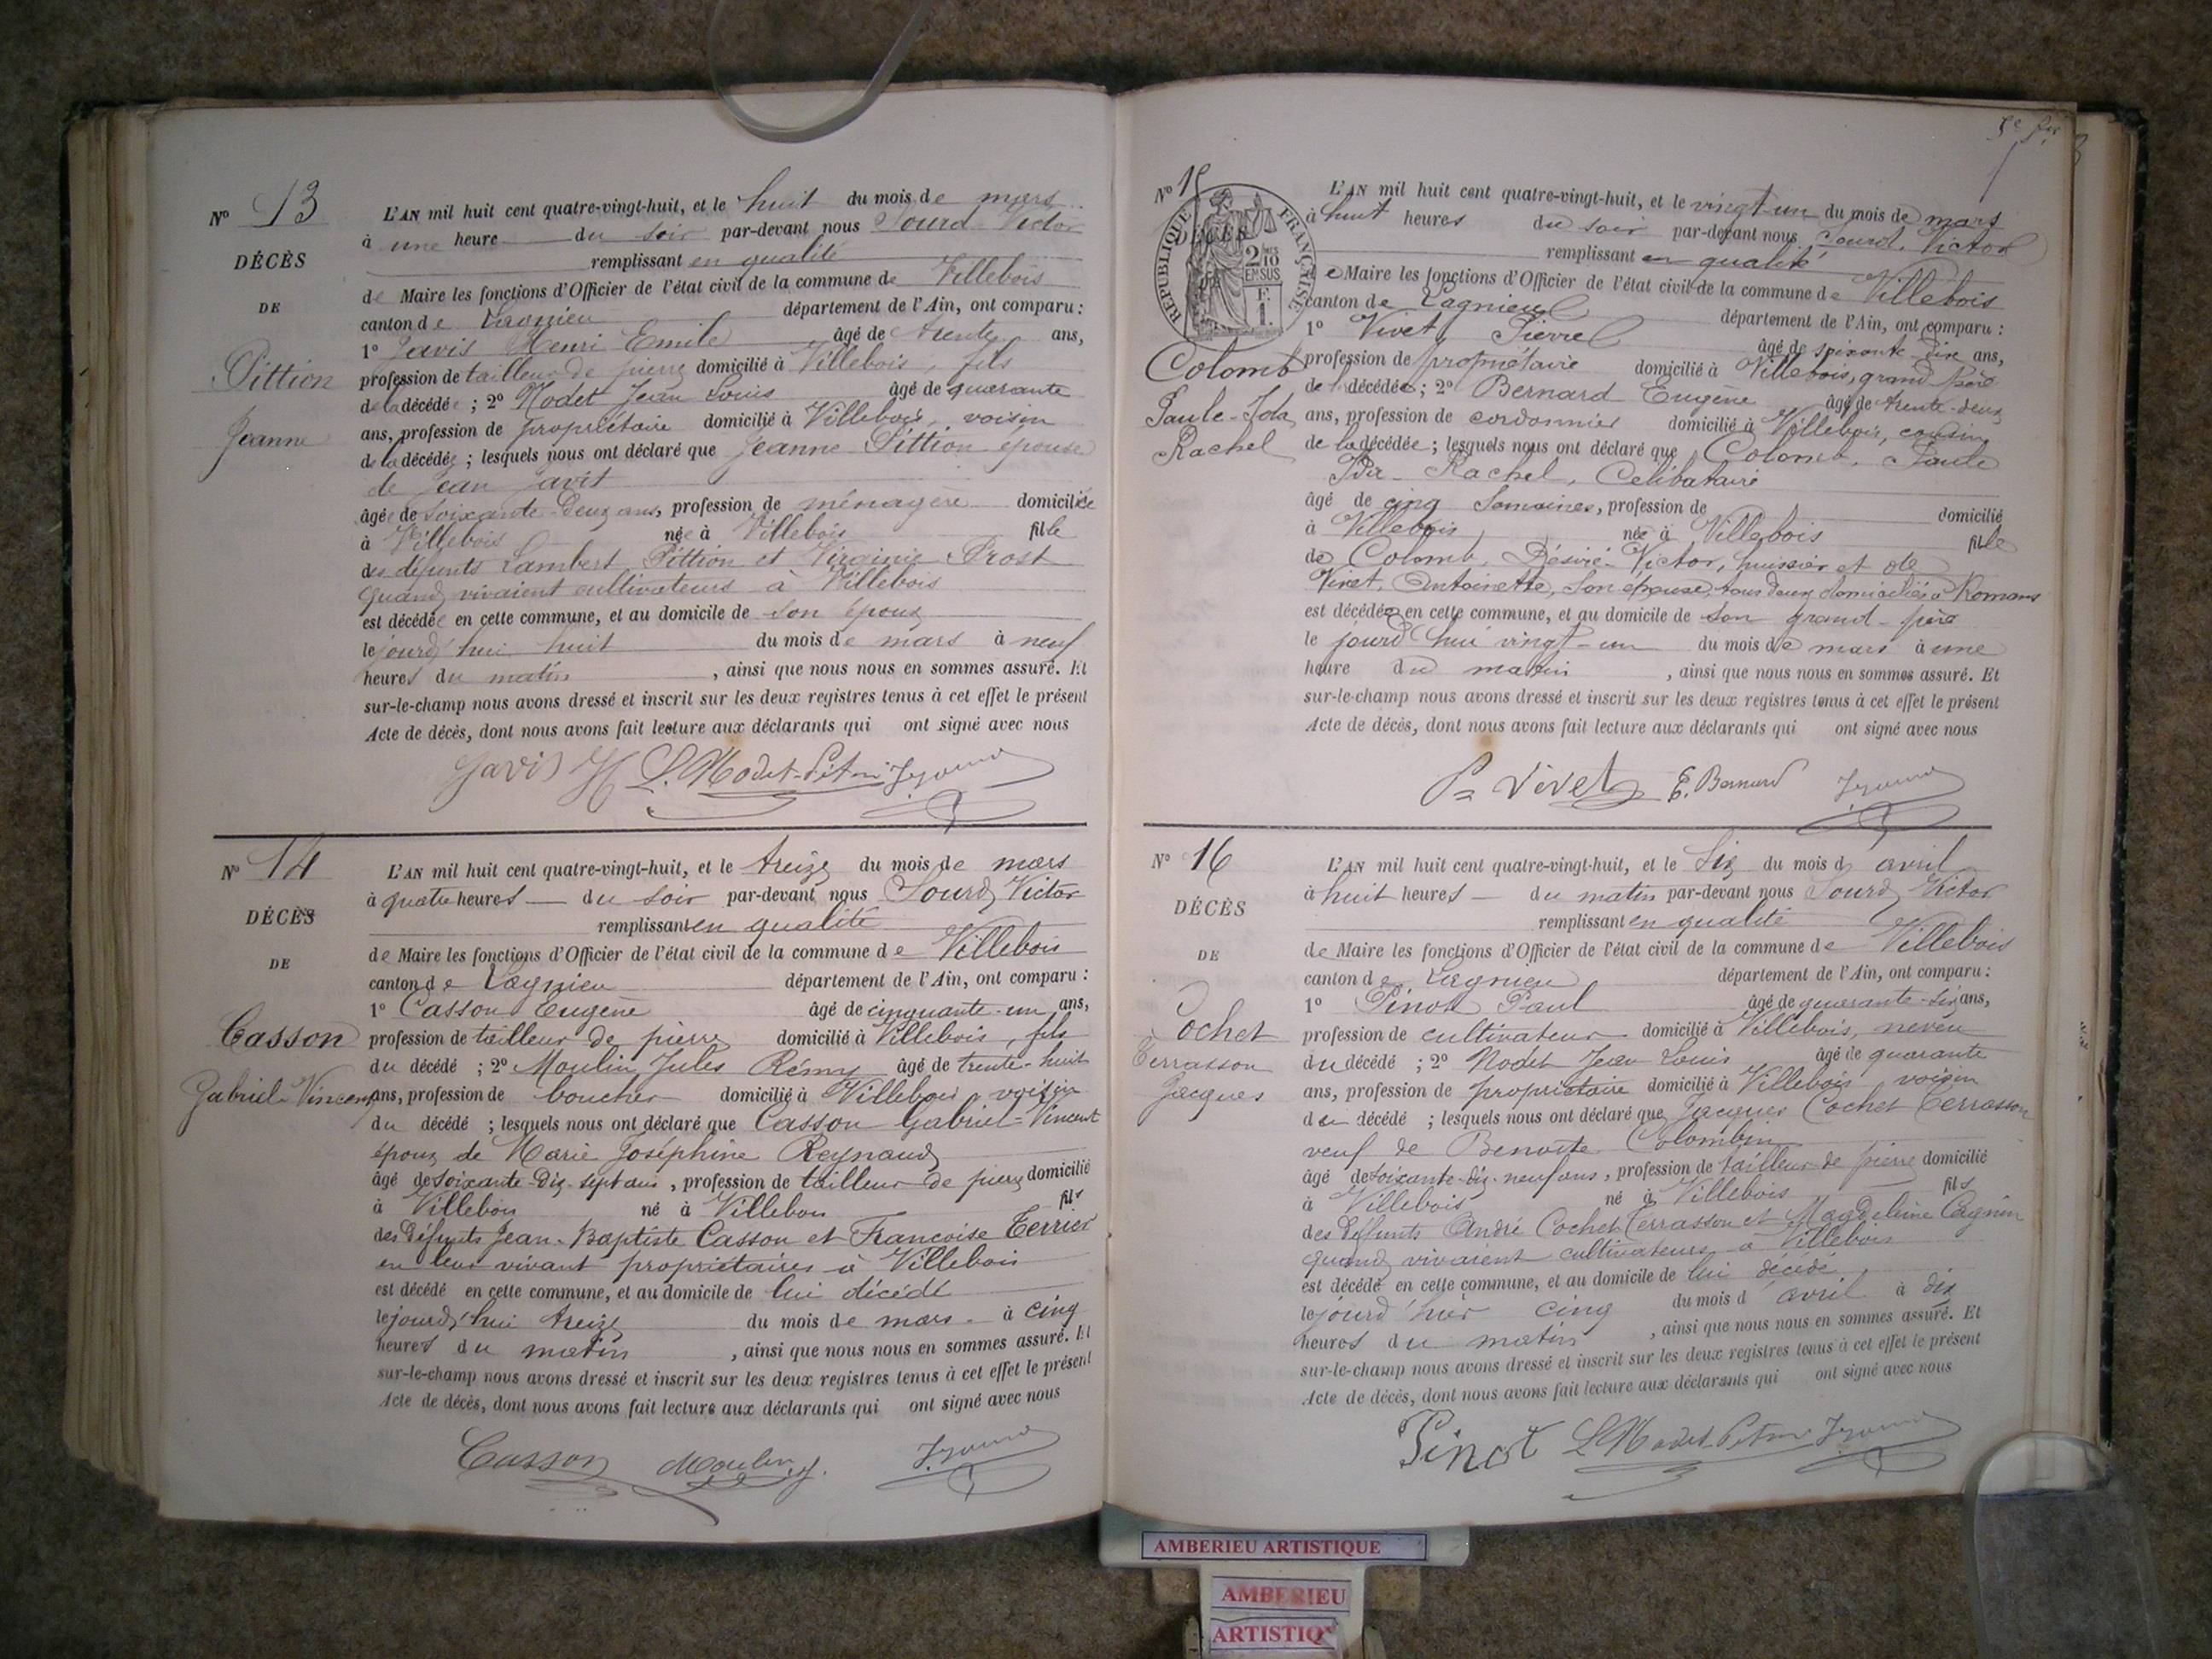 N° 13
DÉCÈS
DE
Pittion
Jeanne
L'AN mil huit cent quatre-vingt-huit, et le huit du mois de mars
à une heure du soir par-devant nous Sourd Victor
remplissant en qualité
de Maire les fonctions d'Officier de l'état civil de la commune de Villebois
canton de Lagnieu département de l'Ain, ont comparu :
1° Javis Henri Emile âgé de trente ans,
profession de tailleur de pierre domicilié à Villebois, fils
de la décédée ; 2° Modet Jean Louis âgé de quarante
ans, profession de propriétaire domicilié à Villebois, voisin
de la décédée ; lesquels nous ont déclaré que Jeanne Pittion épouse
de Jean Javit
âgée de soixante-deux ans, profession de ménagère domiciliée
à Villebois née à Villebois fille
des défunts Lambert Pittion et Virginie Prost
quand vivaient cultivateurs à Villebois
est décédée en cette commune, et au domicile de son époux
le jourd'hui huit du mois de mars à neuf
heures du matin , ainsi que nous nous en sommes assuré. Et
sur-le-champ nous avons dressé et inscrit sur les deux registres tenus à cet effet le présent
Acte de décès, dont nous avons fait lecture aux déclarants qui ont signé avec nous
Javis H L. Modet
N° 14
DÉCÈS
DE
Casson
Gabriel-Vincent
L'AN mil huit cent quatre-vingt-huit, et le treize du mois de mars
à quatre heures du soir par-devant nous Sourd Victor
remplissant en qualité
de Maire les fonctions d'Officier de l'état civil de la commune de Villebois
canton de Lagnieu département de l'Ain, ont comparu :
1° Casson Eugène âgé de cinquante-un ans,
profession de tailleur de pierre domicilié à Villebois, fils
du décédé ; 2° Moulin Jules Rémy âgé de trente-huit
ans, profession de boucher domicilié à Villebois voisin
du décédé ; lesquels nous ont déclaré que Casson Gabriel-Vincent
époux de Marie Joséphine Reynaud
âgé de soixante-dix-sept ans, profession de tailleur de pierre domicilié
à Villebois né à Villebois fils
des défunts Jean-Baptiste Casson et Francoise Terrier
en leur vivant propriétaires à Villebois
est décédé en cette commune, et au domicile de lui décédé
le jourd'hui treize du mois de mars à cinq
heures du matin , ainsi que nous nous en sommes assuré. Et
sur-le-champ nous avons dressé et inscrit sur les deux registres tenus à cet effet le présent
Acte de décès, dont nous avons fait lecture aux déclarants qui ont signé avec nous
Casson Moulin J.
N° 15
RÉPUBLIQUE FRANÇAISE
2/10 EN SUS
1 F.
DÉCÈS
Colomb
Paule-Ida
Rachel
L'AN mil huit cent quatre-vingt-huit, et le vingt-un du mois de mars
à huit heures du soir par-devant nous Sourd Victor
remplissant en qualité
de Maire les fonctions d'Officier de l'état civil de la commune de Villebois
canton de Lagnieu département de l'Ain, ont comparu :
1° Vivet Pierre âgé de soixante-dix ans,
profession de propriétaire domicilié à Villebois, grand père
de la décédée ; 2° Bernard Eugène âgé de trente-deux
ans, profession de cordonnier domicilié à Villebois, cousin
de la décédée ; lesquels nous ont déclaré que Colomb, Paule
Ida-Rachel, Célibataire
âgé de cinq Semaines, profession de domicilié
à Villebois née à Villebois fille
de Colomb, Désiré-Victor, huissier et de
Vivet, Antoinette, son épouse, tous deux domiciliés à Romans
est décédée en cette commune, et au domicile de son grand-père
le jourd'hui vingt-un du mois de mars à une
heure du matin , ainsi que nous nous en sommes assuré. Et
sur-le-champ nous avons dressé et inscrit sur les deux registres tenus à cet effet le présent
Acte de décès, dont nous avons fait lecture aux déclarants qui ont signé avec nous
P. Vivet E. Bernard
N° 16
DÉCÈS
DE
Cochet
Terrasson
Jacques
L'AN mil huit cent quatre-vingt-huit, et le Six du mois d'avril
à huit heures du matin par-devant nous Sourd Victor
remplissant en qualité
de Maire les fonctions d'Officier de l'état civil de la commune de Villebois
canton de Lagnieu département de l'Ain, ont comparu :
1° Pinot Paul âgé de quarante-six ans,
profession de cultivateur domicilié à Villebois, neveu
du décédé ; 2° Modet Jean Louis âgé de quarante
ans, profession de propriétaire domicilié à Villebois voisin
du décédé ; lesquels nous ont déclaré que Jacques Cochet Terrasson
veuf de Benoite Colombin
âgé de soixante-dix-neuf ans, profession de tailleur de pierre domicilié
à Villebois né à Villebois fils
des défunts André Cochet Terrasson et Magdeleine Cagnin
quand vivaient cultivateurs à Villebois
est décédé en cette commune, et au domicile de lui décédé
le jourd'hier cinq du mois d'avril à dix
heures du matin , ainsi que nous nous en sommes assuré. Et
sur-le-champ nous avons dressé et inscrit sur les deux registres tenus à cet effet le présent
Acte de décès, dont nous avons fait lecture aux déclarants qui ont signé avec nous
Pinot L. Modet
AMBERIEU ARTISTIQUE
AMBERIEU
ARTISTIQ